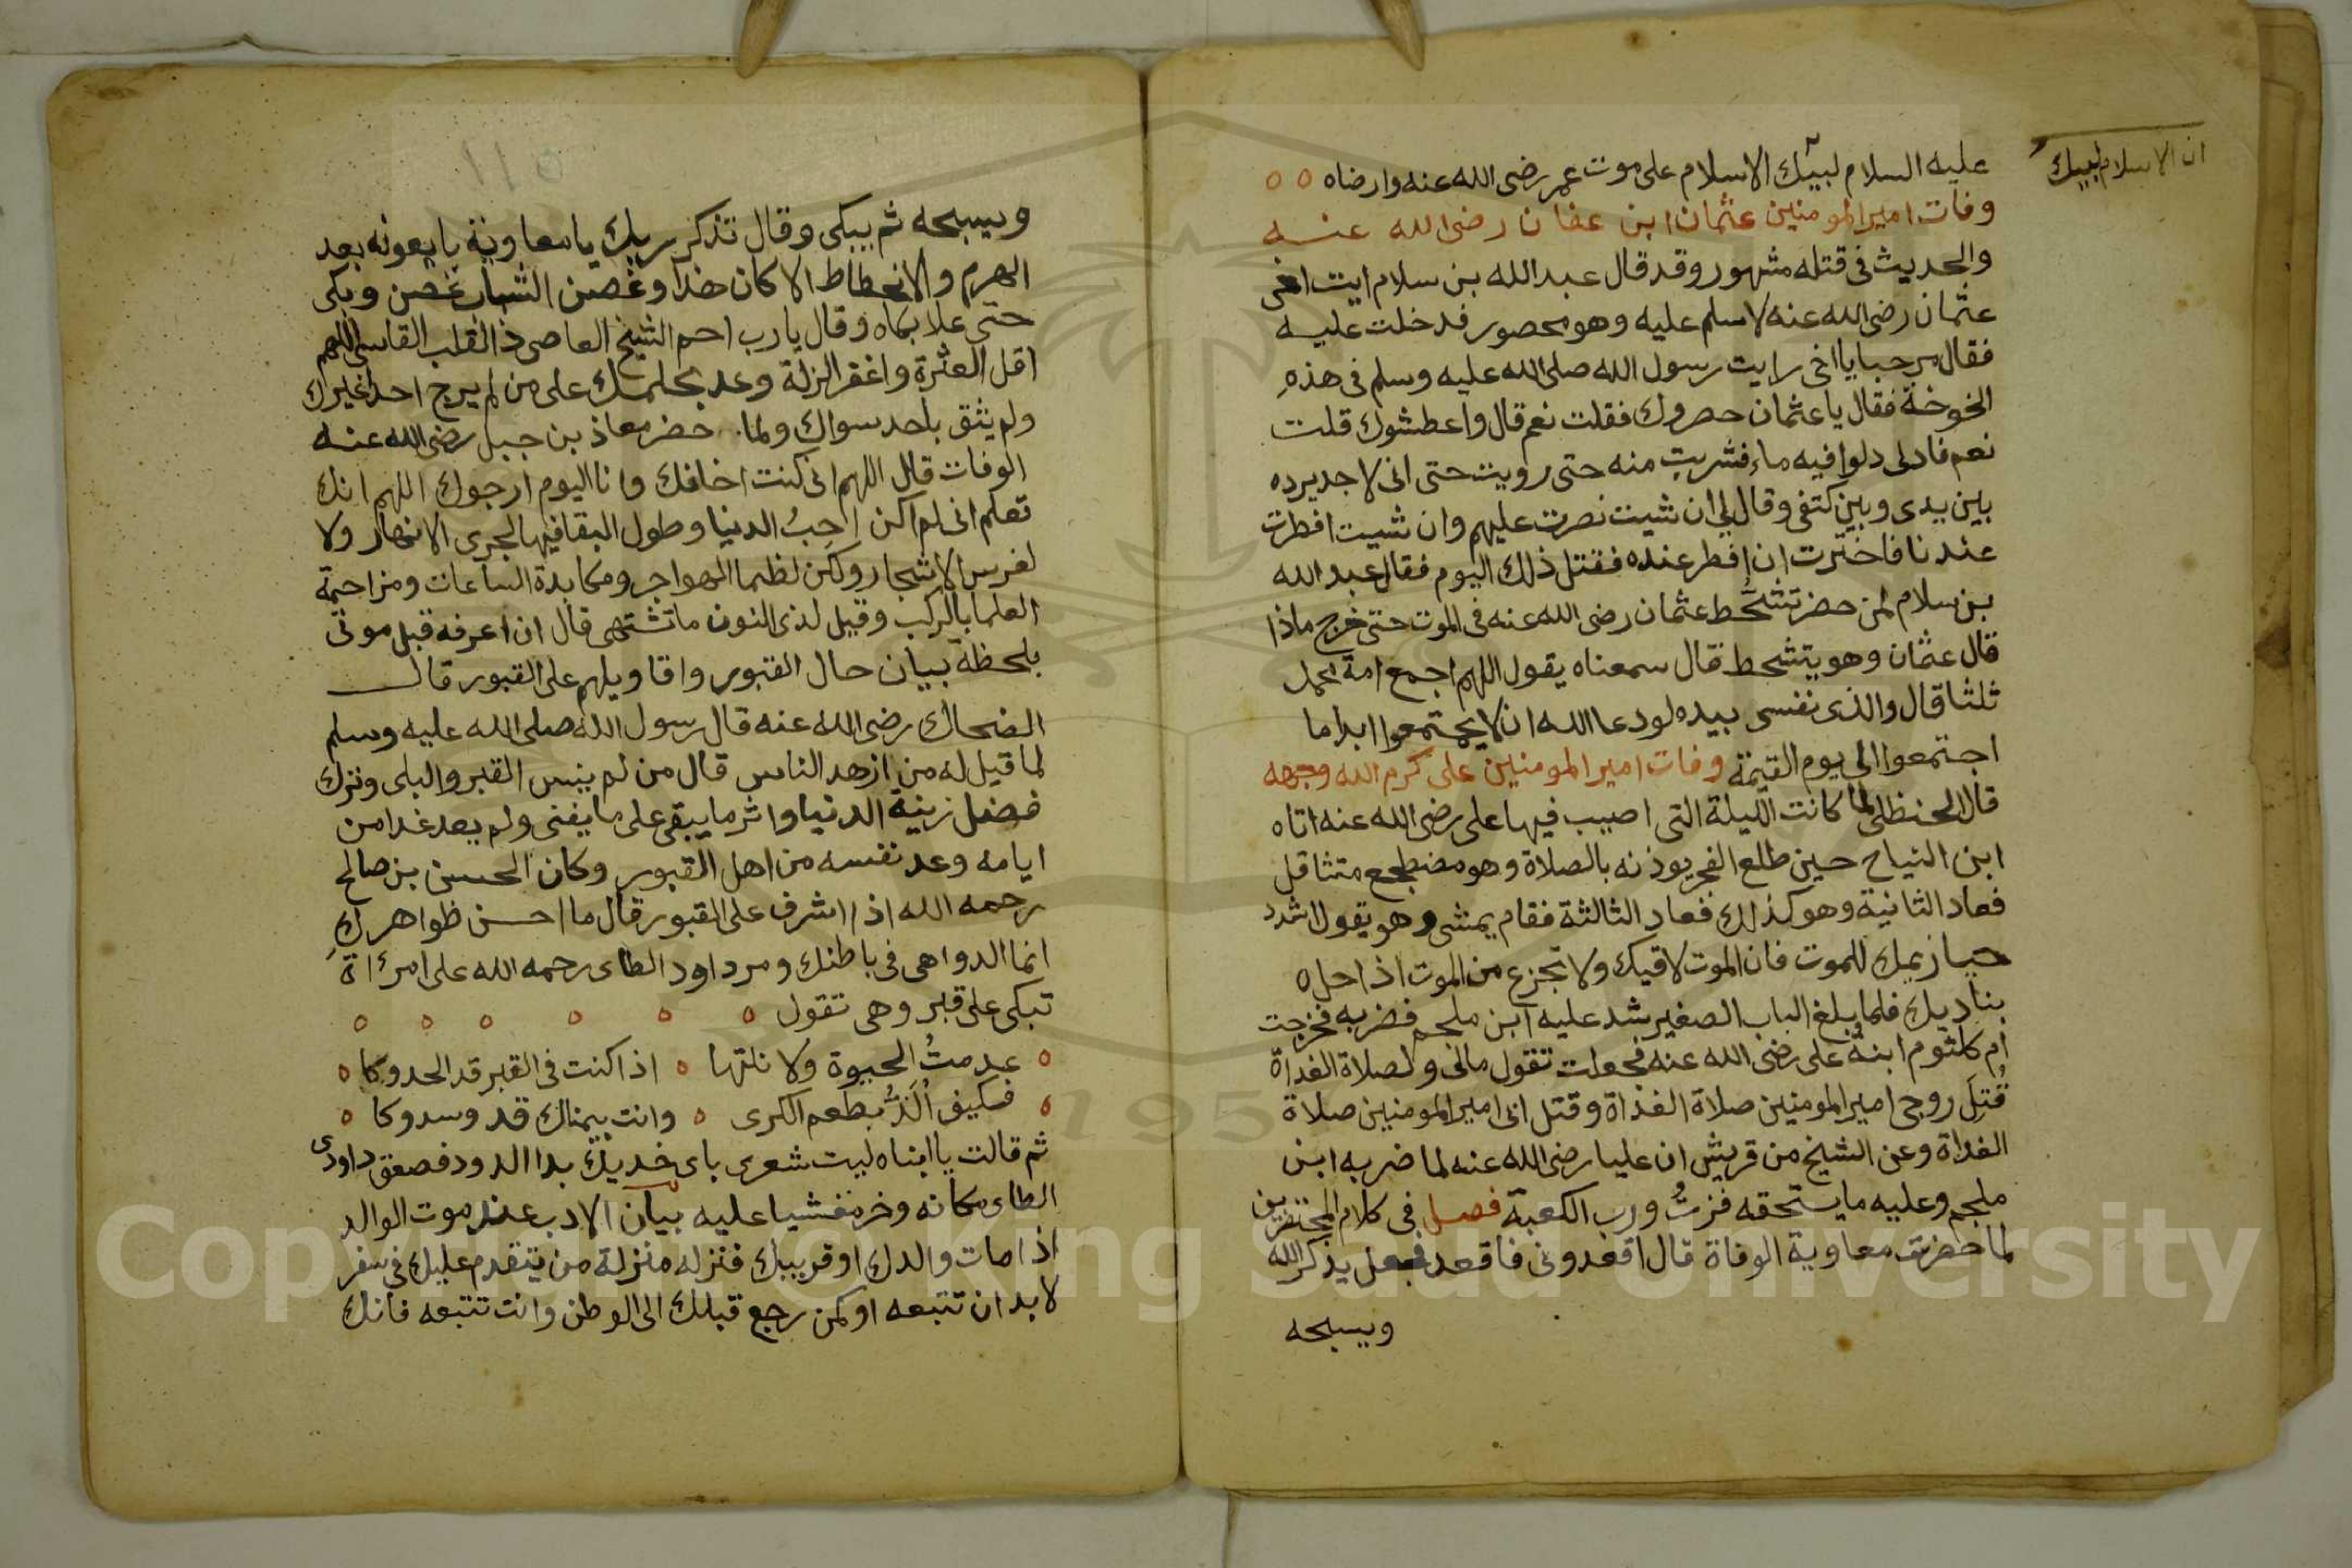 ان الاسلام ليبك
عليه السلام لبيك الاسلام على موت عمر رضى الله عنه وارضاه
وفات امير المومنين عثمان ابن عفان رضى الله عنه
والحديث فى قتله مشهور وقد قال عبد الله بن سلام ايت اخى
عثمان رضى الله عنه لاسلم عليه وهو محصور فدخلت عليه
فقال مرحبا يا اخى رايت رسول الله صلى الله عليه وسلم فى هذه
الخوخة فقال يا عثمان حصروك فقلت نعم قال واعطشوك قلت
نعم فادلى دلوا فيه ماء فشربت منه حتى رويت حتى انى لاجد برده
بين يدى وبين كتفى وقال لى ان شيت نصرت عليهم وان شيت افطرت
عندنا فاخترت ان افطر عنده فقتل ذلك اليوم فقال عبد الله
بن سلام لمن حضر تشحط عثمان رضى الله عنه فى الموت حتى خرج ماذا
قال عثمان وهو يتشحط قال سمعناه يقول اللهم اجمع امة محمد
ثلثا قال والذى نفسى بيده لو دعا الله ان لا يجتمعوا ابدا ما
اجتمعوا الى يوم القيمة وفات امير المومنين على كرم الله وجهه
قال الحنظلى لما كانت الليلة التى اصيب فيها على رضى الله عنه اتاه
ابن التياح حين طلع الفجر يوذنه بالصلاة وهو مضطجع متثاقل
فعاد الثانية وهو كذلك فعاد الثالثة فقام يمشى وهو يقول اشدد
حيازيمك للموت فان الموت لاقيك ولا تجزع من الموت اذا حل ٥
بناديك فلما بلغ الباب الصغير شد عليه ابن ملجم فضربه فخرجت
ام كلثوم ابنة على رضى الله عنه فجعلت تقول مالى ولصلاة الغداة
قُتِلَ زوجى امير المومنين صلاة الغداة وقتل ابى امير المومنين صلاة
الغداة وعن الشيخ من قريش ان عليا رضى الله عنه لما ضربه ابن
ملجم وعليه ما يستحقه فزتُ ورب الكعبة فصل فى كلام المحتضرين
لما حضرت معاوية الوفاة قال اقعدونى فاقعد فجعل يذكر الله
ويسبحه
ويسبحه ثم يبكى وقال تذكر ربك يا معاوية يا بعد
الهرم والانحطاط الا كان هذا وغصن الشباب غصن وبكى
حتى علا بكاه وقال يا رب احم الشيخ العاصى ذا القلب القاسى اللهم
اقل العثرة واغفر الزلة وعد بحلمك على من لم يرج احدا غيرك
ولم يثق باحد سواك ولما حضر معاذ بن جبل رضى الله عنه
الوفات قال اللهم انى كنت اخافك وانا اليوم ارجوك اللهم انك
تعلم انى لم اكن احِبُ الدنيا وطول البقا فيها لجرى الانهار ولا
لغرس الاشجار ولكن لظما الهواجر ومكابدة الساعات ومزاحمة
العلما بالركب وقيل لذى النون ما تشتهى قال ان اعرفه قبل موتى
بلحظة بيان حال القبور واقاويلهم على القبور قال
الضحاك رضى الله عنه قال رسول الله صلى الله عليه وسلم
لما قيل له من ازهد الناس قال من لم ينس القبر والبلى وترك
فضل زينة الدنيا واثر ما يبقى على ما يفنى ولم يعد غدا من
ايامه وعد نفسه من اهل القبور وكان الحسن بن صالح
رحمه الله اذا اشرف على القبور قال ما احسن ظواهرك
انما الدواهى فى باطنك ومر داود الطاى رحمه الله على امرأة
تبكى على قبر وهى تقول
عدمتُ الحيوة ولا نلتها ٥ اذا كنت فى القبر قد الحدوكا
فكيف اُلَذُّ بطعم الكرى ٥ وانت بيمناك قد وسدوكا
ثم قالت يا ابتاه ليت شعرى باى خديك بدا الدود فصعق داود
الطاى مكانه وخر مغشيا عليه بيان الادب عند موت الوالد
اذا مات والدك او قريبك فنزله منزلة من يتقدم عليك فى سفر
لا بد ان تتبعه او كمن رجع قبلك الى الوطن وانت تتبعه فانك
Copyright © King Saud University